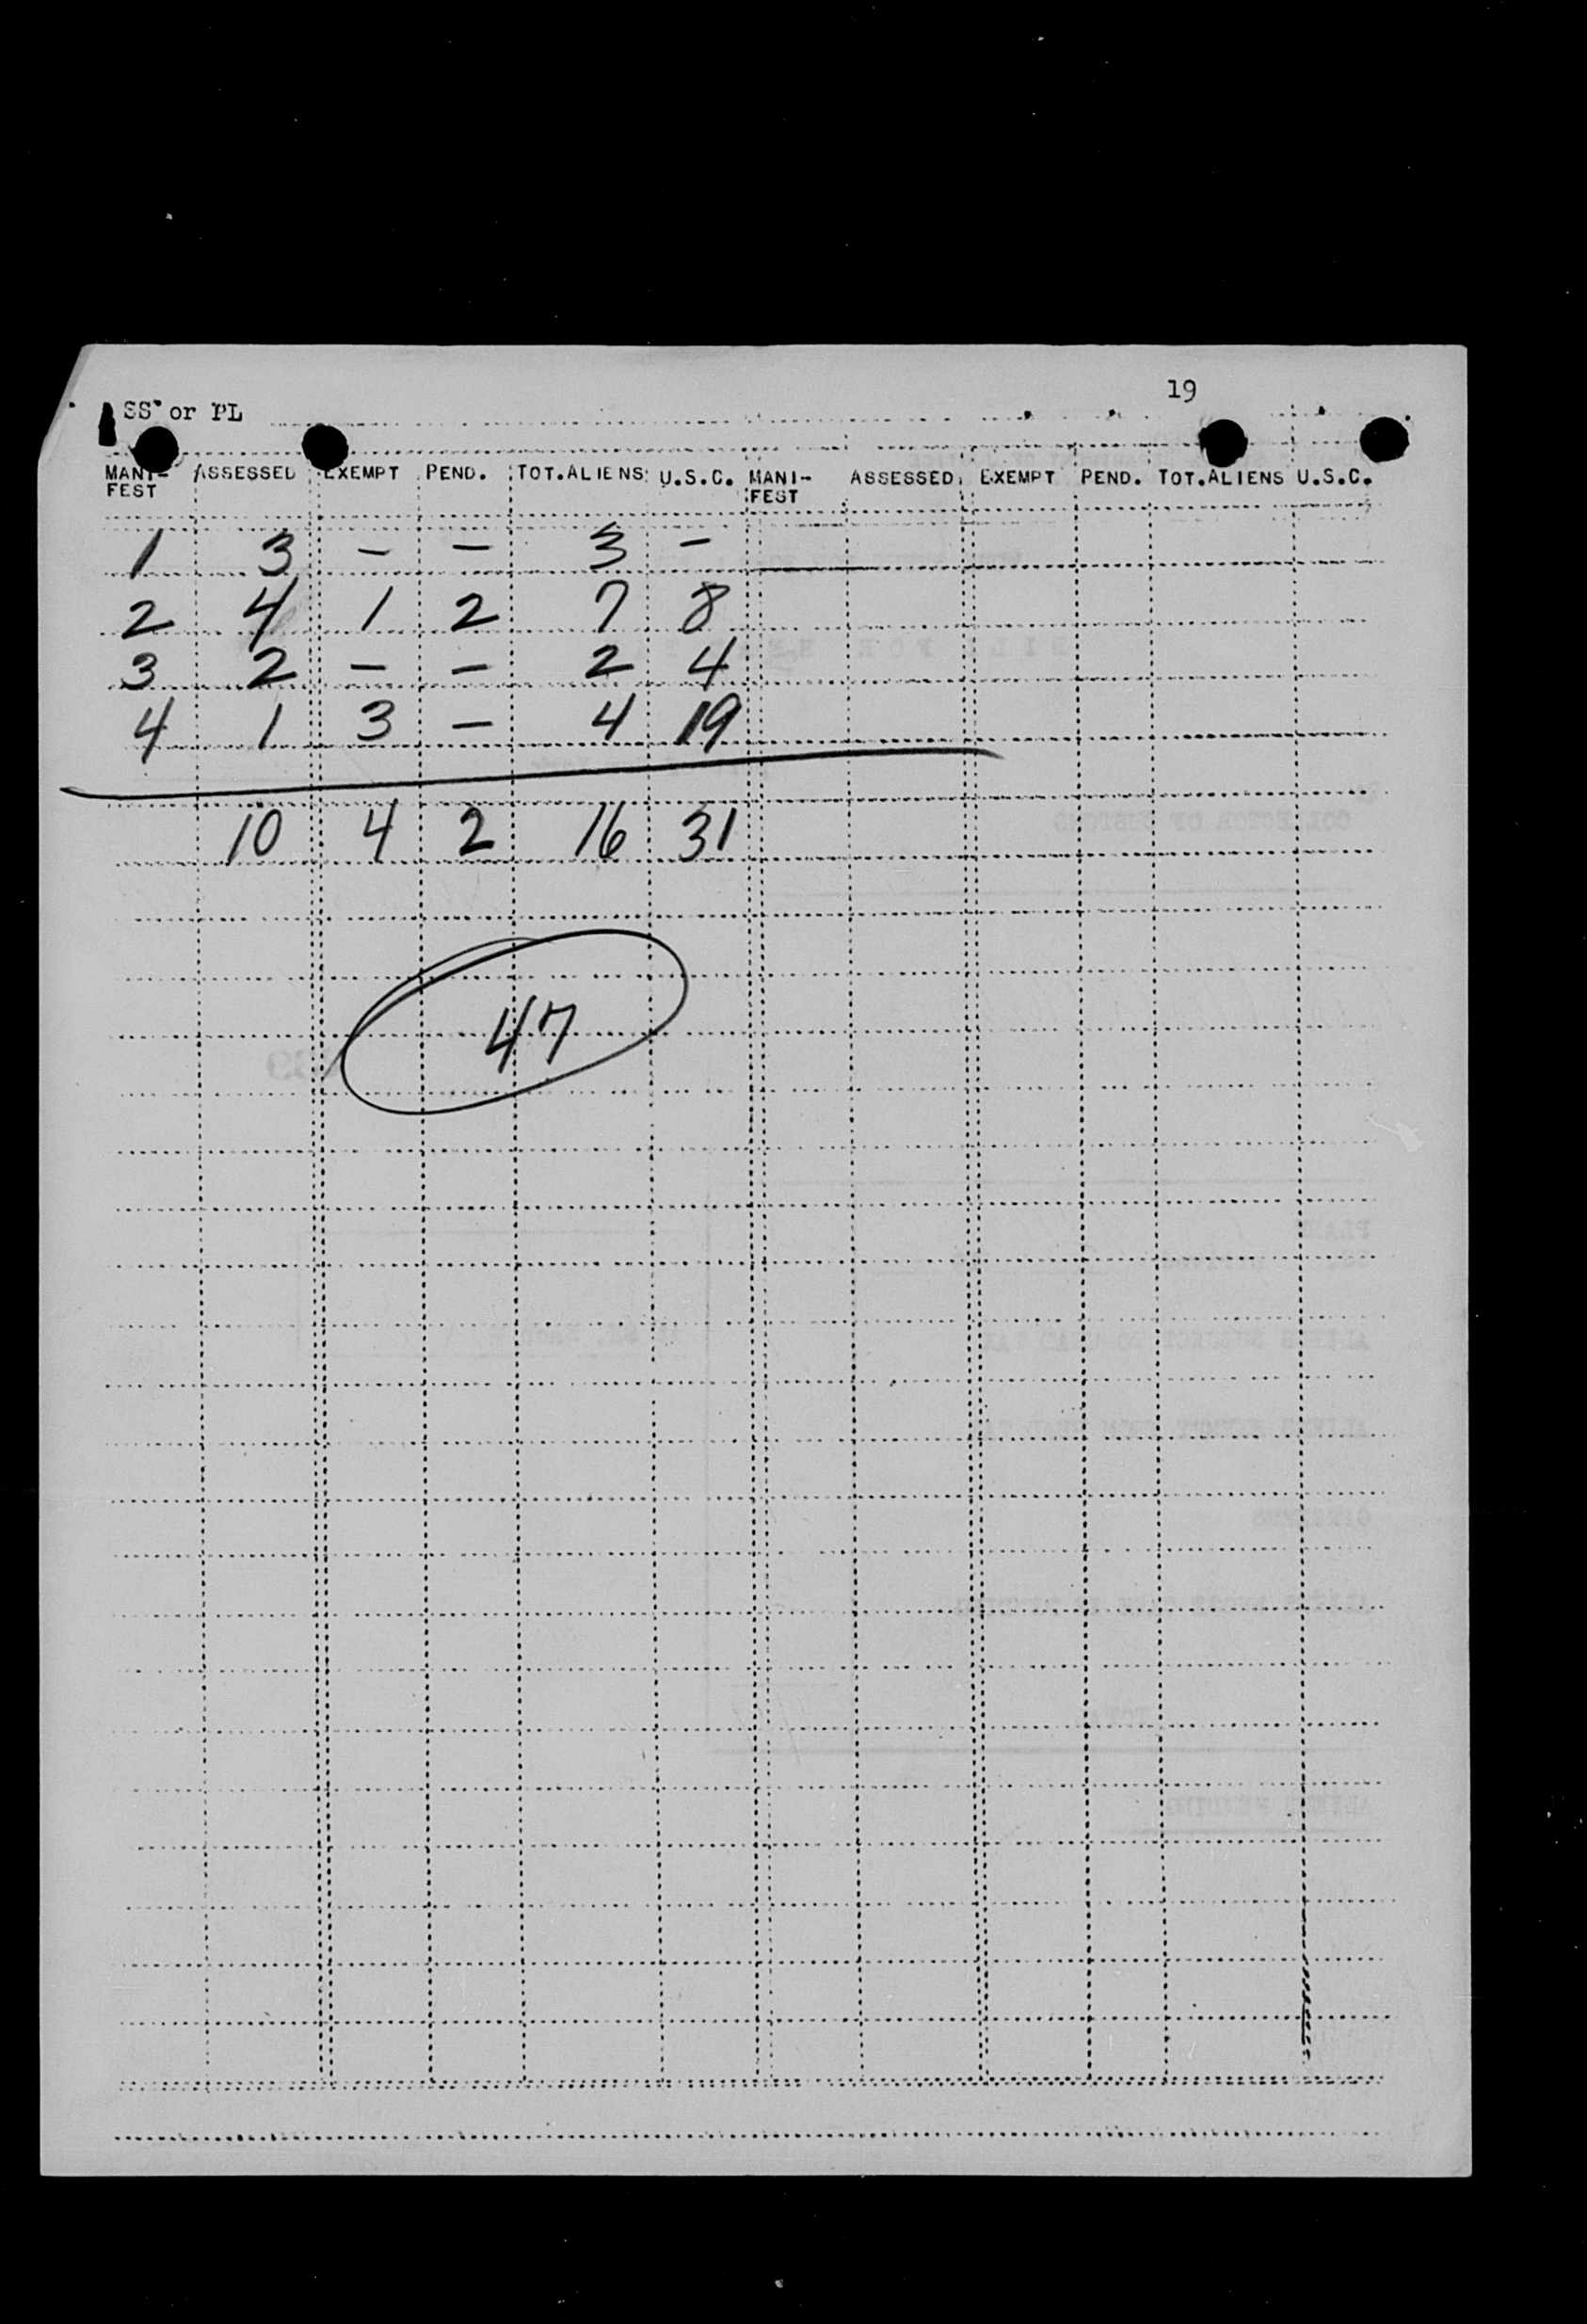 19
SS or PL
MANI- ASSESSED EXEMPT PEND. TOT.ALIENS U.S.C. MANI- ASSESSED EXEMPT PEND. TOT.ALIENS U.S.C.
FEST FEST
1 3 - - 3 -
2 4 1 2 7 8
3 2 - - 2 4
4 1 3 - 4 19
10 4 2 16 31
47